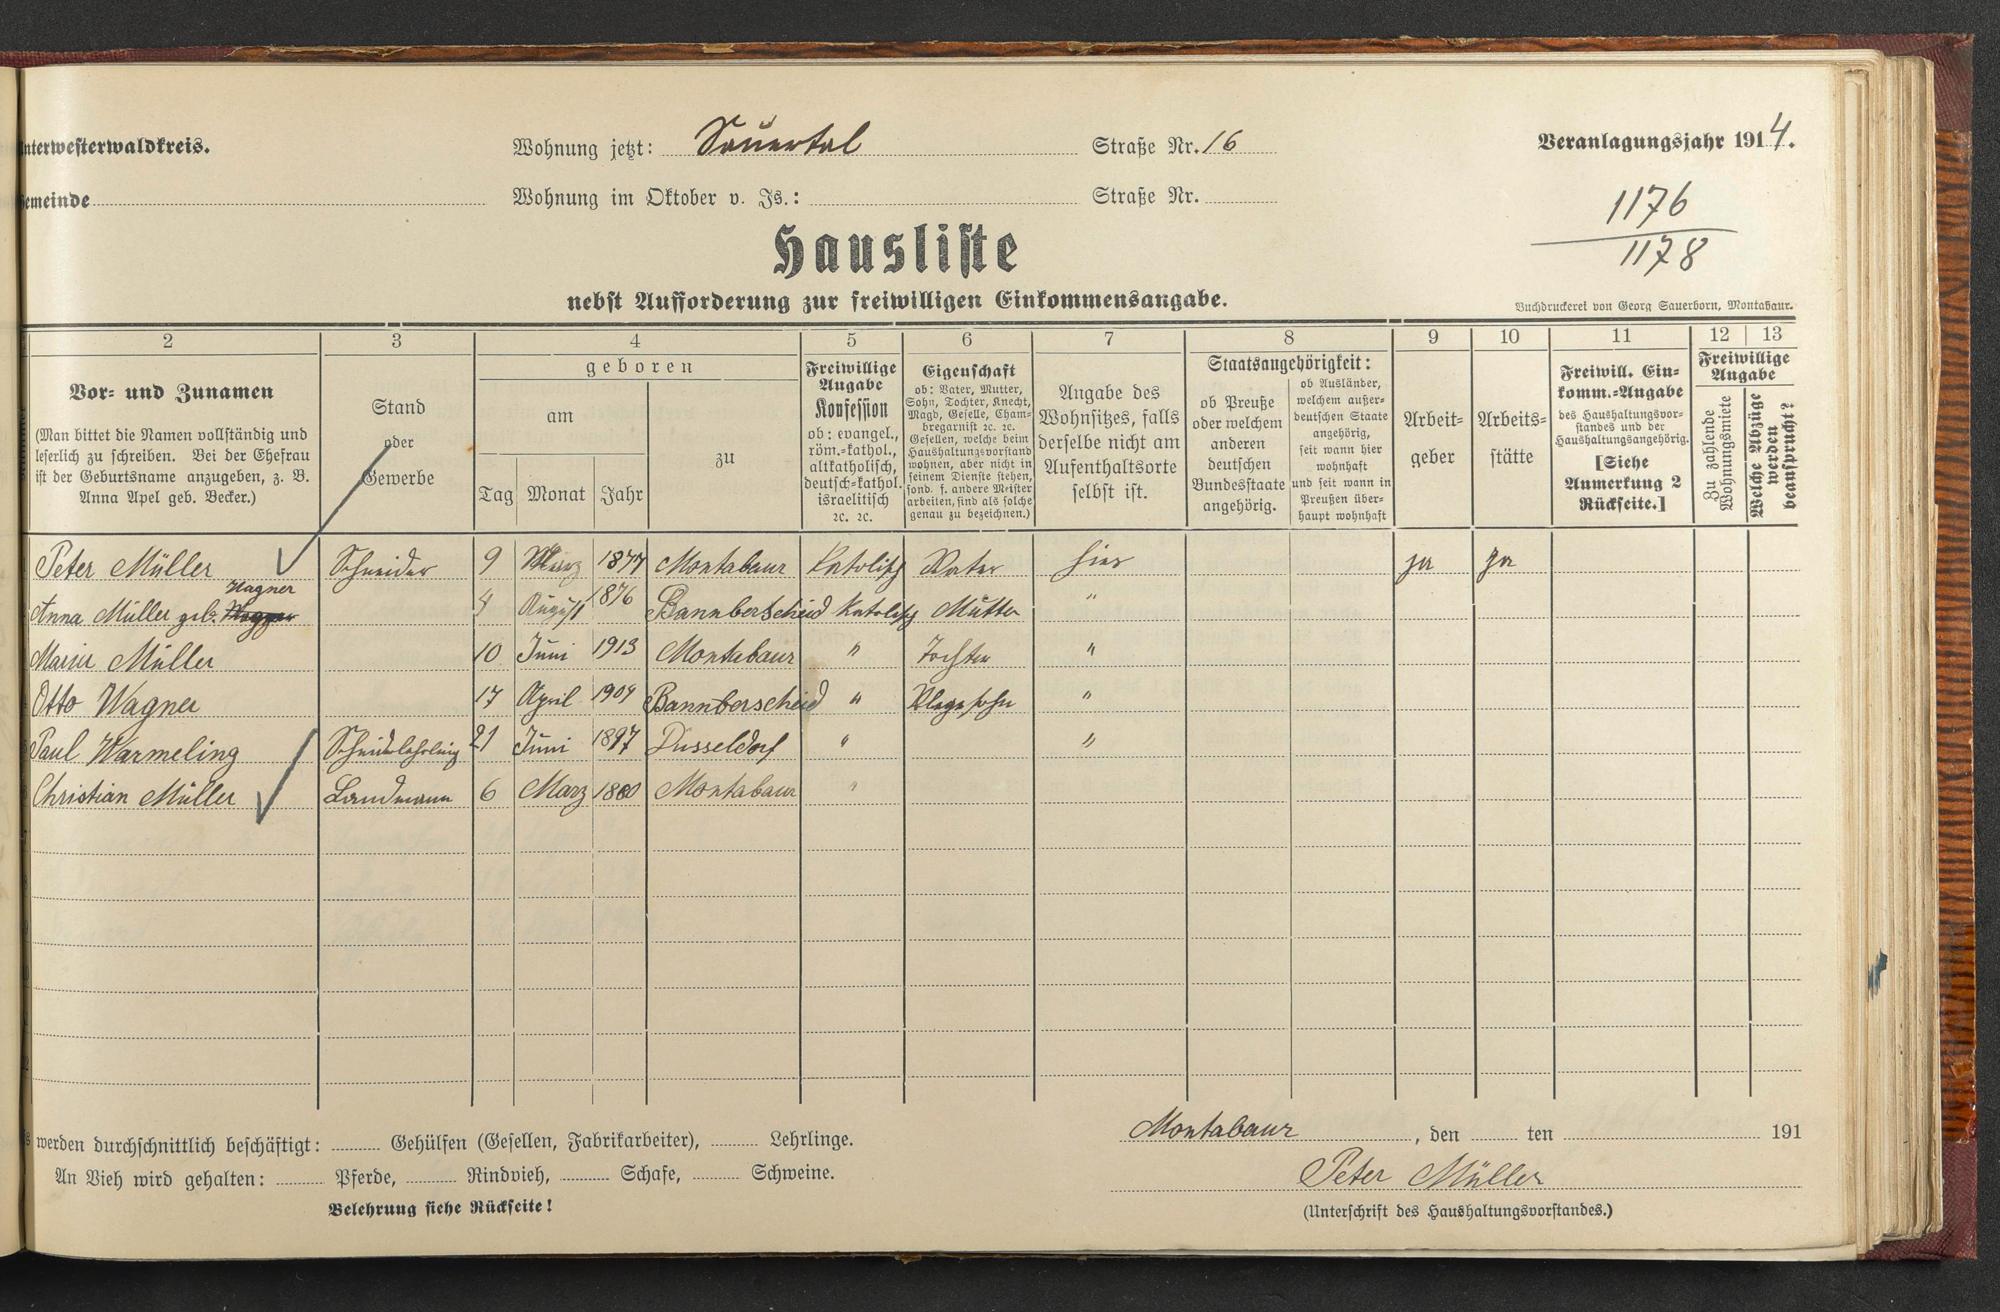 nterwesterwaldkreis. Wohnung jetzt: Sauertal Straße Nr. 16 Veranlagungsjahr 1914.
emeinde Wohnung im Oktober v. Js.: Straße Nr.
1176
1178
Hausliste
nebst Aufforderung zur freiwilligen Einkommensangabe.
Buchdruckerei von Georg Sauerborn, Montabaur.
2 3 4 5 6 7 8 9 10 11 12 13
Vor- und Zunamen
(Man bittet die Namen vollständig und
leserlich zu schreiben. Bei der Ehefrau
ist der Geburtsname anzugeben, z. B.
Anna Apel geb. Becker.)
Stand
oder
Gewerbe
geboren
am
Tag Monat Jahr
zu
Freiwillige
Angabe
Konfession
ob: evangel.,
röm.-kathol.,
altkatholisch,
deutsch-kathol.
israelitisch
ꝛc. ꝛc.
Eigenschaft
ob: Vater, Mutter,
Sohn, Tochter, Knecht,
Magd, Geselle, Cham-
bregarnist ꝛc. ꝛc.
Gesellen, welche beim
Haushaltungsvorstand
wohnen, aber nicht in
seinem Dienste stehen,
sond. f. andere Meister
arbeiten, sind als solche
genau zu bezeichnen.)
Angabe des
Wohnsitzes, falls
derselbe nicht am
Aufenthaltsorte
selbst ist.
Staatsangehörigkeit:
ob Preuße
oder welchem
anderen
deutschen
Bundesstaate
angehörig.
ob Ausländer,
welchem außer-
deutschen Staate
angehörig,
seit wann hier
wohnhaft
und seit wann in
Preußen über-
haupt wohnhaft
Arbeit-
geber
Arbeits-
stätte
Freiwill. Ein-
komm.-Angabe
des Haushaltungsvor-
standes und der
Haushaltungsangehörig.
[Siehe
Anmerkung 2
Rückseite.]
Freiwillige
Angabe
Zu zahlende
Wohnungsmiete
Welche Abzüge
werden
beansprucht?
Peter Müller Schneider 9 März 1877 Montabaur Katolisch Vater hier ja ja
Wagner
Anna Müller geb. 4 August 1876 Bannberscheid Katolisch Mutter "
Maria Müller 10 Juni 1913 Montabaur " Tochter "
Otto Wagner 17 April 1904 Bannberscheid " Plegesohn "
Paul Warmeling Schneiderlehrling 21 Juni 1897 Düsseldorf " "
Christian Müller Landmann 6 März 1880 Montabaur "
werden durchschnittlich beschäftigt: Gehülfen (Gesellen, Fabrikarbeiter), Lehrlinge.
An Vieh wird gehalten: Pferde, Rindvieh, Schafe, Schweine.
Belehrung siehe Rückseite!
Montabaur, den ten 191
Peter Müller
(Unterschrift des Haushaltungsvorstandes.)